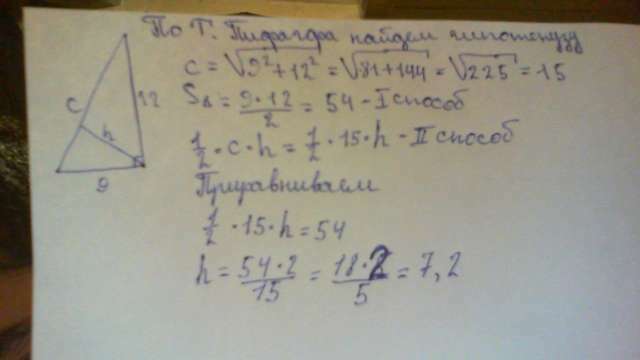 По Т. Пифагора найдем гипотенузу
c = √9²+12² = √81+144 = √225 = 15
S△ = 9·12/2 = 54 - I способ
1/2 · c · h = 1/2 · 15 · h - II способ
Приравниваем
1/2 · 15 · h = 54
h = 54·2/15 = 18·2/5 = 7,2
c
12
h
9